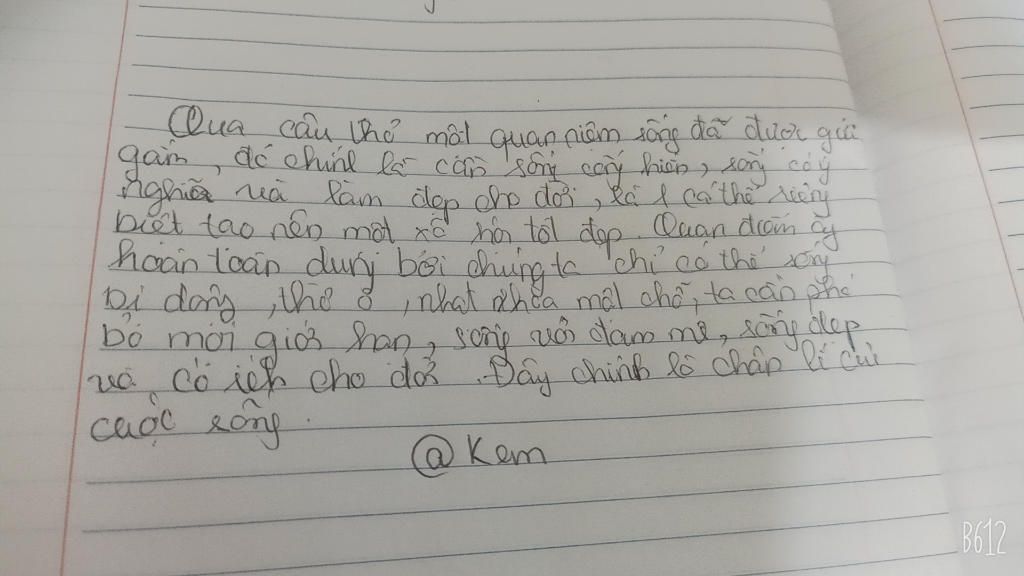 Qua câu thơ một quan niệm sống đã được gửi
gắm, đó chính là cần sống cống hiến, sống có ý
nghĩa và làm đẹp cho đời, là 1 cá thể riêng
biệt tạo nên một xã hội tốt đẹp. Quan điểm ấy
hoàn toàn đúng bởi chúng ta chỉ có thể sống
bị động, thờ ơ, nhạt nhòa một chỗ, ta cần phá
bỏ mọi giới hạn, sống với đam mê, sống đẹp
và có ích cho đời. Đây chính là chân lí của
cuộc sống.
@Kem
B612